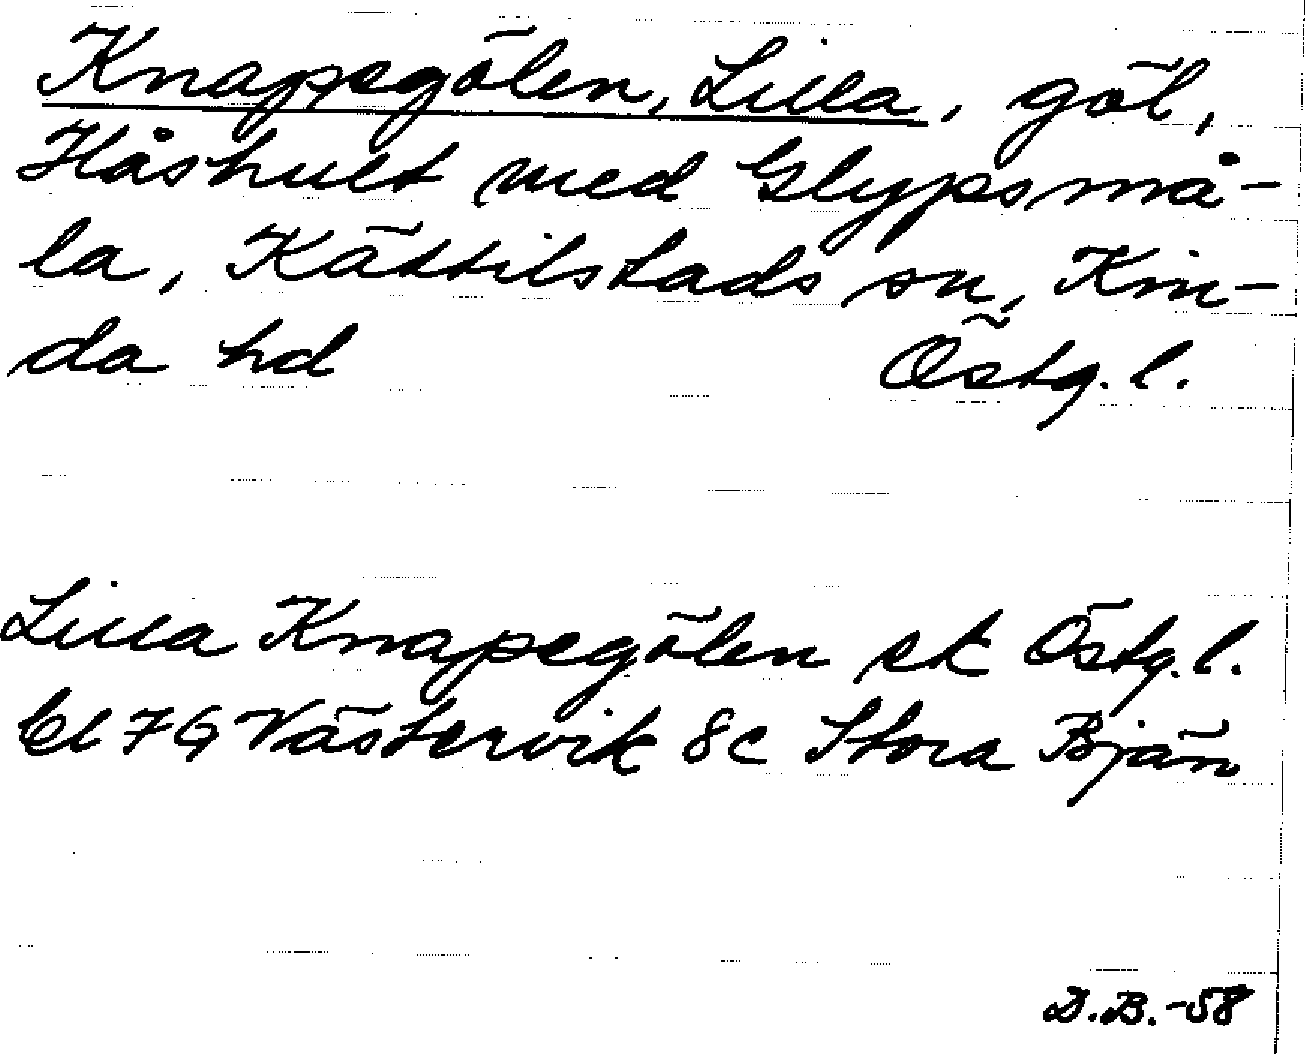 Knapegölen, Lilla, göl,
Håshult med Glypsmå-
la, Kättilstads sn, Kin-
da hd Östg. l.
Lilla Knapegölen ek Östg. l.
bl 7G Västervik 8c Stora Bjän
D.B.-58